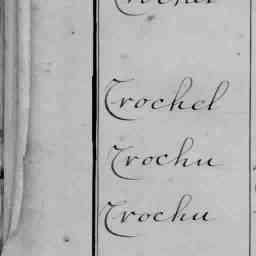 Trochel
Trochu
Trochu